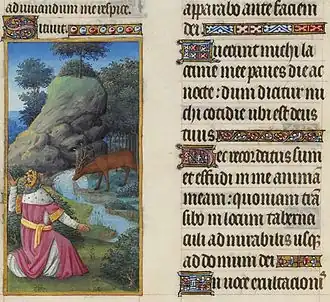 adiuvandum me respice.
Sitivit.
apparabo ante faciem
dei
Fuerunt michi la
crime mee panes die ac
nocte: dum dicitur mi
chi cotidie ubi est deus
tuus
Hec recordatus sum
et effudi in me animā
meam: quoniam trā
sibo in locum taberna
culi admirabilis usq
ad domum dei
In voce exultacioni